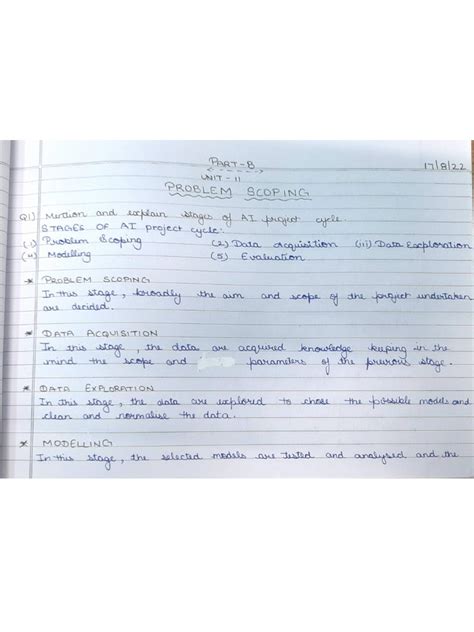 PART-B 17/8/22
UNIT - II
PROBLEM SCOPING
Q1) Mention and explain stages of AI project cycle.
STAGES OF AI project cycle:
(1) Problem Scoping (2) Data Acquisition (iii) Data Exploration
(4) Modelling (5) Evaluation
* PROBLEM SCOPING
In this stage, broadly the aim and scope of the project undertaken
are decided.
* DATA ACQUISITION
In this stage, the data are acquired knowledge keeping in the
mind the scope and parameters of the previous stage.
* DATA EXPLORATION
In this stage, the data are explored to chose the possible models and
clean and normalise the data.
* MODELLING
In this stage, the selected models are tested and analysed and the